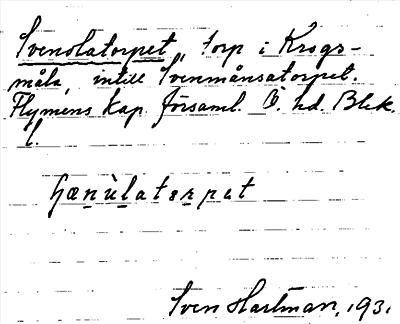 Svenolatorpet, torp i Krogs-
måla, intill Svenmånsatorpet.
Flymens kap. församl. Ö. hd. Blek.
l.
Sven Hartman, 193.